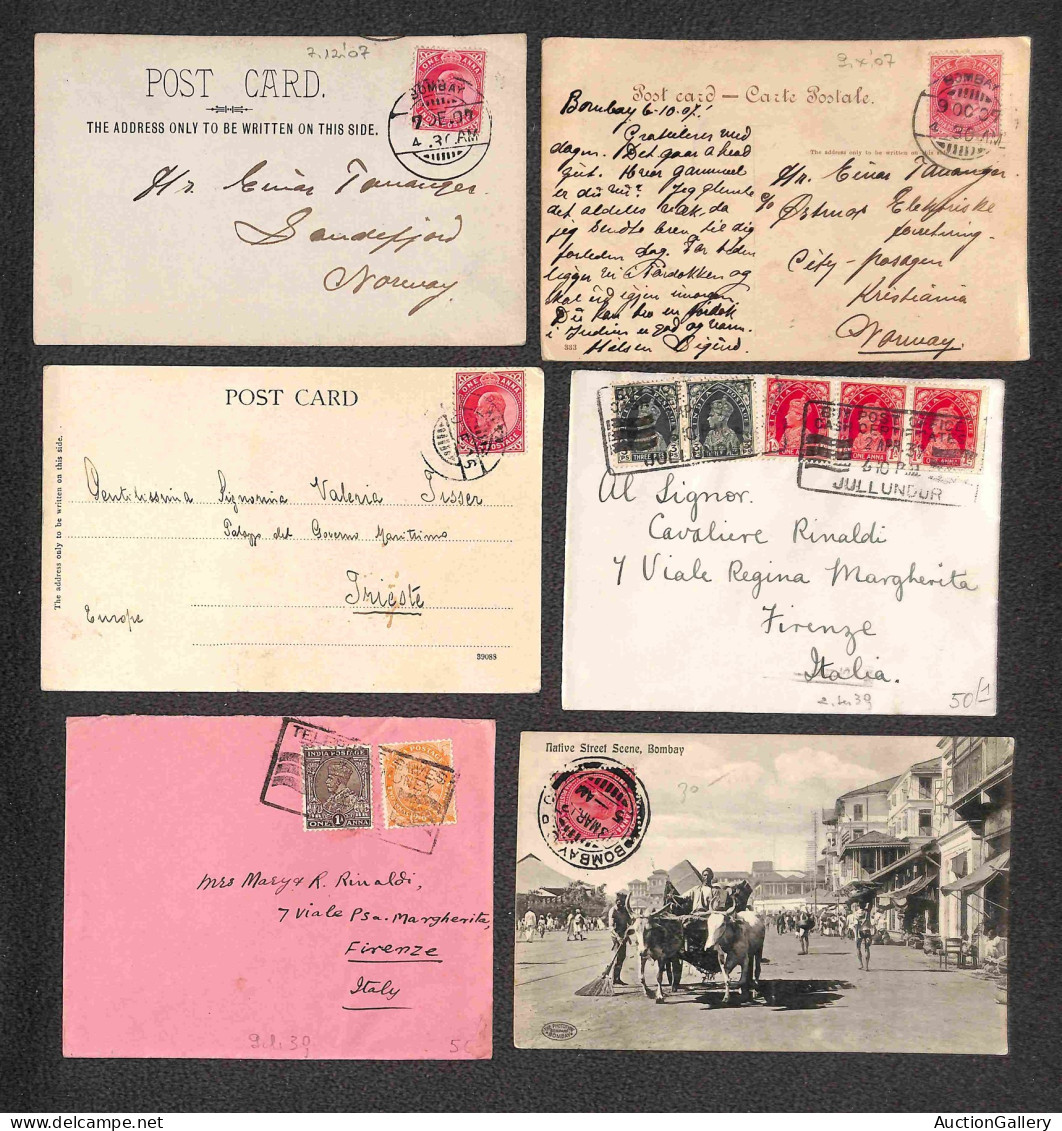 7.12.'07
POST CARD.
THE ADDRESS ONLY TO BE WRITTEN ON THIS SIDE.
ONE ANNA
BOMBAY
7 DE.07
4.30 AM
Hr. Einar Tananger.
Sandefjord
Norway.
9.x.'07
Post card — Carte Postale.
The address only to be written on this side.
BOMBAY
9 OC.07
4.30 AM
Bombay 6-10.07.
Gratuleres med
dagen. Det gaar a head
gut. Hvor gammel
er du nu? Jeg glemte
det aldeles væk, da
jeg sendte brev til dig
forleden dag.
ligger vi i Tørdokken og
skal ud igjen imorgen
Du kan tro en
i Indien er god og varm.
Hilsen Sigurd.
333
Hr. Einar Tananger.
c/o Østmos Elektriske
forretning.
City-passagen
Kristiania
Norway.
POST CARD
The address only to be written on this side.
ONE ANNA
POSTAGE
Gentilissima Signorina Valeria Tisser
Palazzo del Governo Marittimo
Trieste
Europe
39088
THREE PIES
ONE ANNA
POST OFFICE
JULLUNDUR
Al Signor.
Cavaliere Rinaldi
7 Viale Regina Margherita
Firenze
Italia.
50/1
INDIA POSTAGE
ONE 1A ANNA
POSTAGE
Mrs Mary & R. Rinaldi,
7 Viale Psa. Margherita,
Firenze
Italy
Native Street Scene, Bombay
30-
BOMBAY
MAR
AM
AuctionGallery